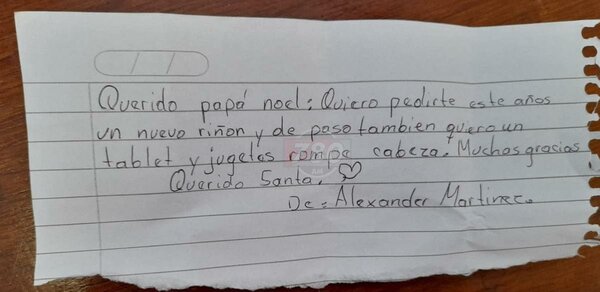 Querido papá noel: Quiero pedirte este años
un nuevo riñon y de paso tambien quiero un
tablet y jugetes rompe cabeza. Muchas gracias
Querido Santa.
De: Alexander Martinez.
780
AM